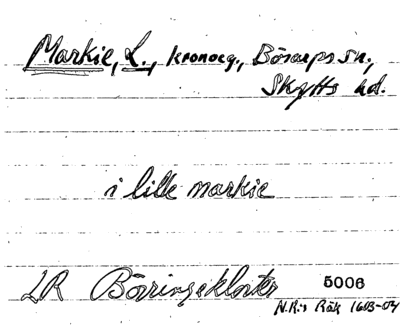 Markie, L., kronoeg., Bösarps sn.,
Skytts hd.
i lille markie
LR Börringekloster 5006
N.R:s Räk 1603-04